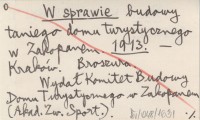 W sprawie budowy
taniego domu turystycznego
w Zakopanem 1913. —
Kraków. Broszura.
Wydał Komitet Budowy
Domu Turystycznego w Zakopanem
(Akad. Zw. Sport.)